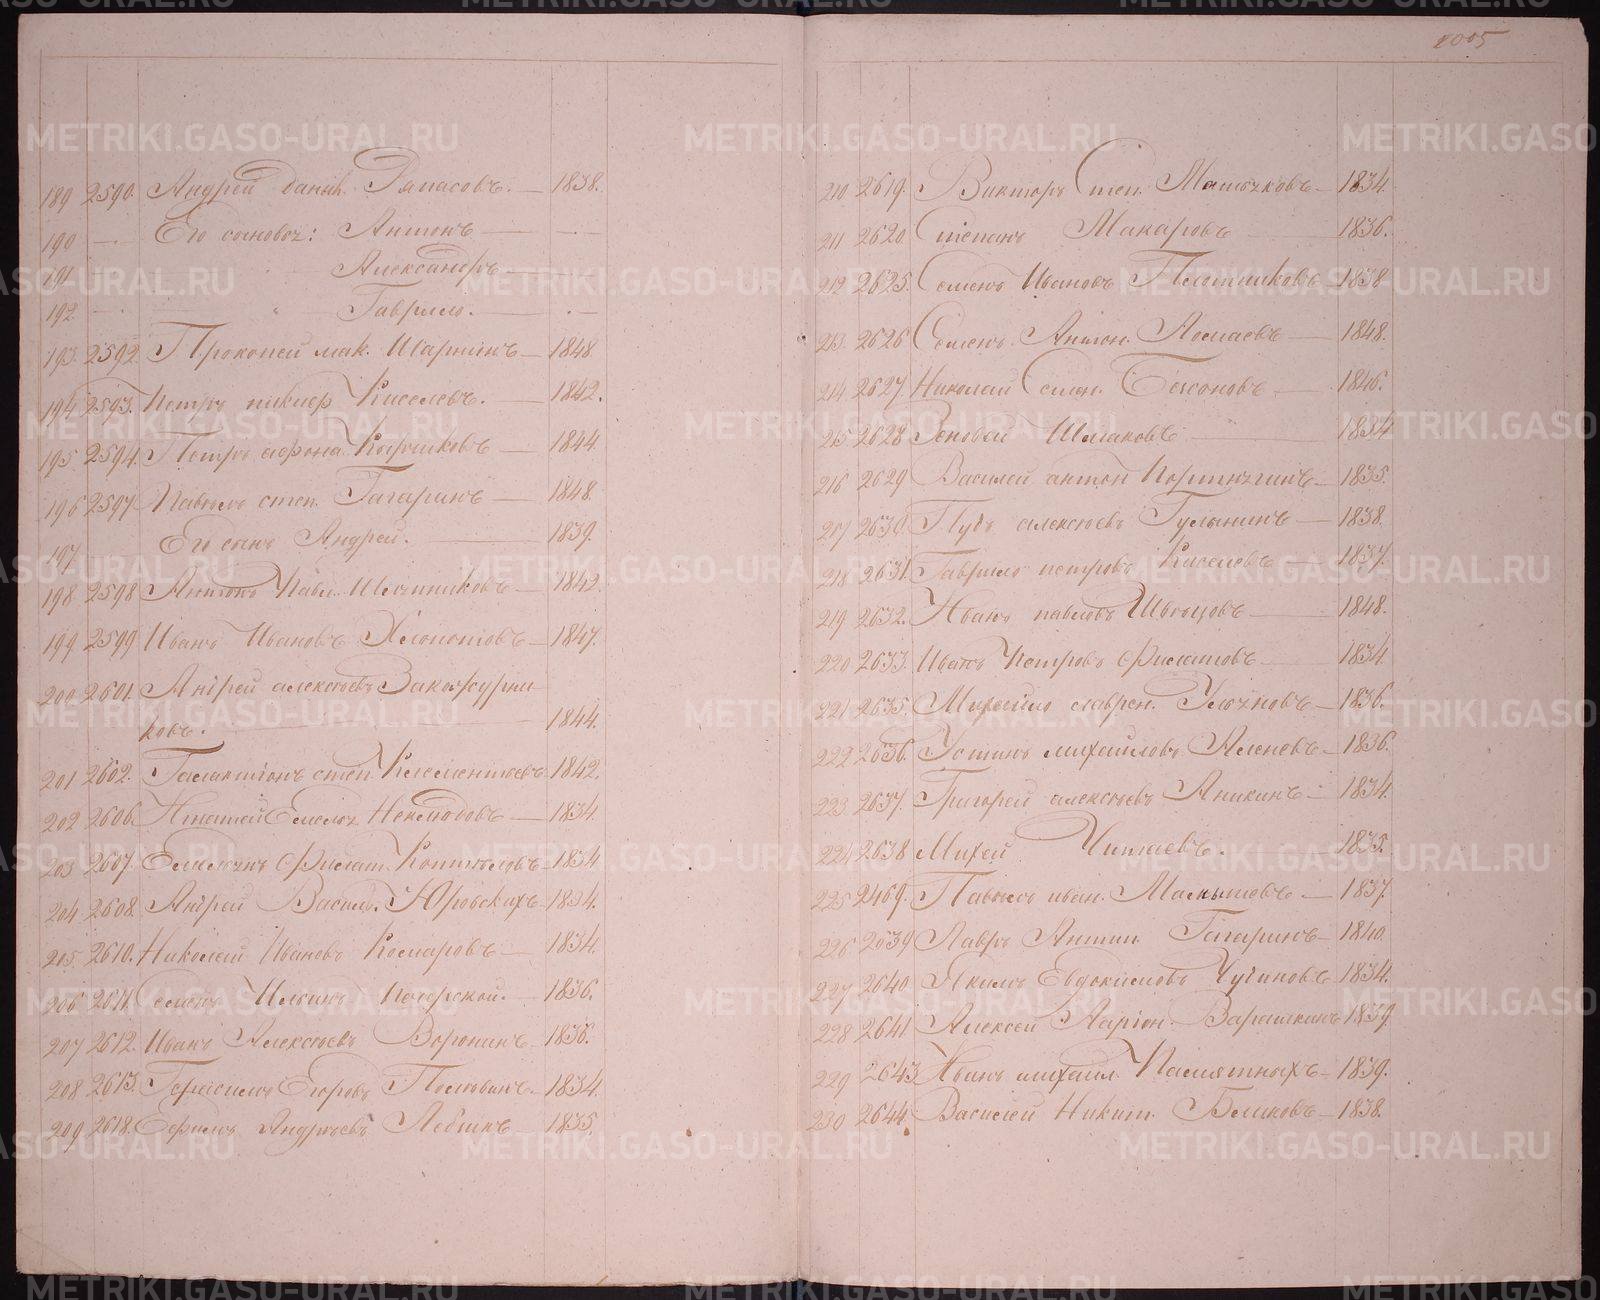 1005
189 2590. Андрей Данил. Запасовъ. — 1838.
190 — Его сыновья: Антонъ — —
191 Александръ —
192 — Гаврило. — —
193. 2592. Прокопей Мак. Шаринъ — 1848.
194 2593. Петръ Никиф Киселевъ. — 1842.
195 2594. Петръ Афона — 1844.
196 2597. Павелъ степ. Гагаринъ — 1848.
197 Его сынъ Андрей. — 1839.
198 2598 Антонъ Павл. — 1842.
199 2599 Иванъ Ивановъ Хлопотовъ — 1847.
200 2601. Андрей алексѣевъ Закожурни-
ковъ. — 1844.
201 2602. Галактіонъ степ. Клементьевъ 1842.
202 2606. Игнатей Емельян Неклюдовъ — 1834.
203 2607. Емельянъ Филат. — 1834
204 2608. Андрей Васил. Юровскихъ — 1834.
205. 2610. Николай Ивановъ Комаровъ — 1834.
206 2611. Семенъ Ильинъ Печерской. — 1836.
207 2612. Иванъ Алексѣевъ Воронинъ — 1836.
208 2613. Герасимъ Егоровъ — 1834.
209 2618. Ефимъ Андреевъ — 1835.
210 2619. Викторъ Степ. Малычковъ — 1834.
211 2620. Степанъ Макаровъ — 1836.
212 2625. Семенъ Ивановъ Плотниковъ — 1838
213. 2626 Семенъ Антон. — 1848.
214 2627. Николай Семен. Бессоновъ — 1846.
215 2628 Зеновей Шмаковъ — 1834
216 2629 Василей антон — 1835.
217 2630. алексѣевъ Гулынинъ — 1838.
218 2631. Гаврило петровъ Киселевъ — 1837.
219 2632. Иванъ павловъ Швецовъ — 1848.
220 2633. Иванъ Петровъ Филатовъ — 1834.
221 2635. Михайло лаврен. — 1836.
222 2636. Устинъ михайловъ — 1836.
223 2637. Григорей алексѣевъ Аникинъ — 1834.
224 2638 Михей Читаевъ. — 1835.
225 2469. Павелъ иван. Малышевъ — 1837.
226 2639 Лавръ Антип. Гагаринъ — 1840.
227 2640. Якимъ Евдокимовъ Чугиновъ 1834.
228 2641 Алексей Ларіон. Варашкинъ 1839
229 2643. Иванъ михайл. Памятныхъ — 1839.
230 2644. Василей Никит. Бѣликовъ — 1838.
METRIKI.GASO-URAL.RU